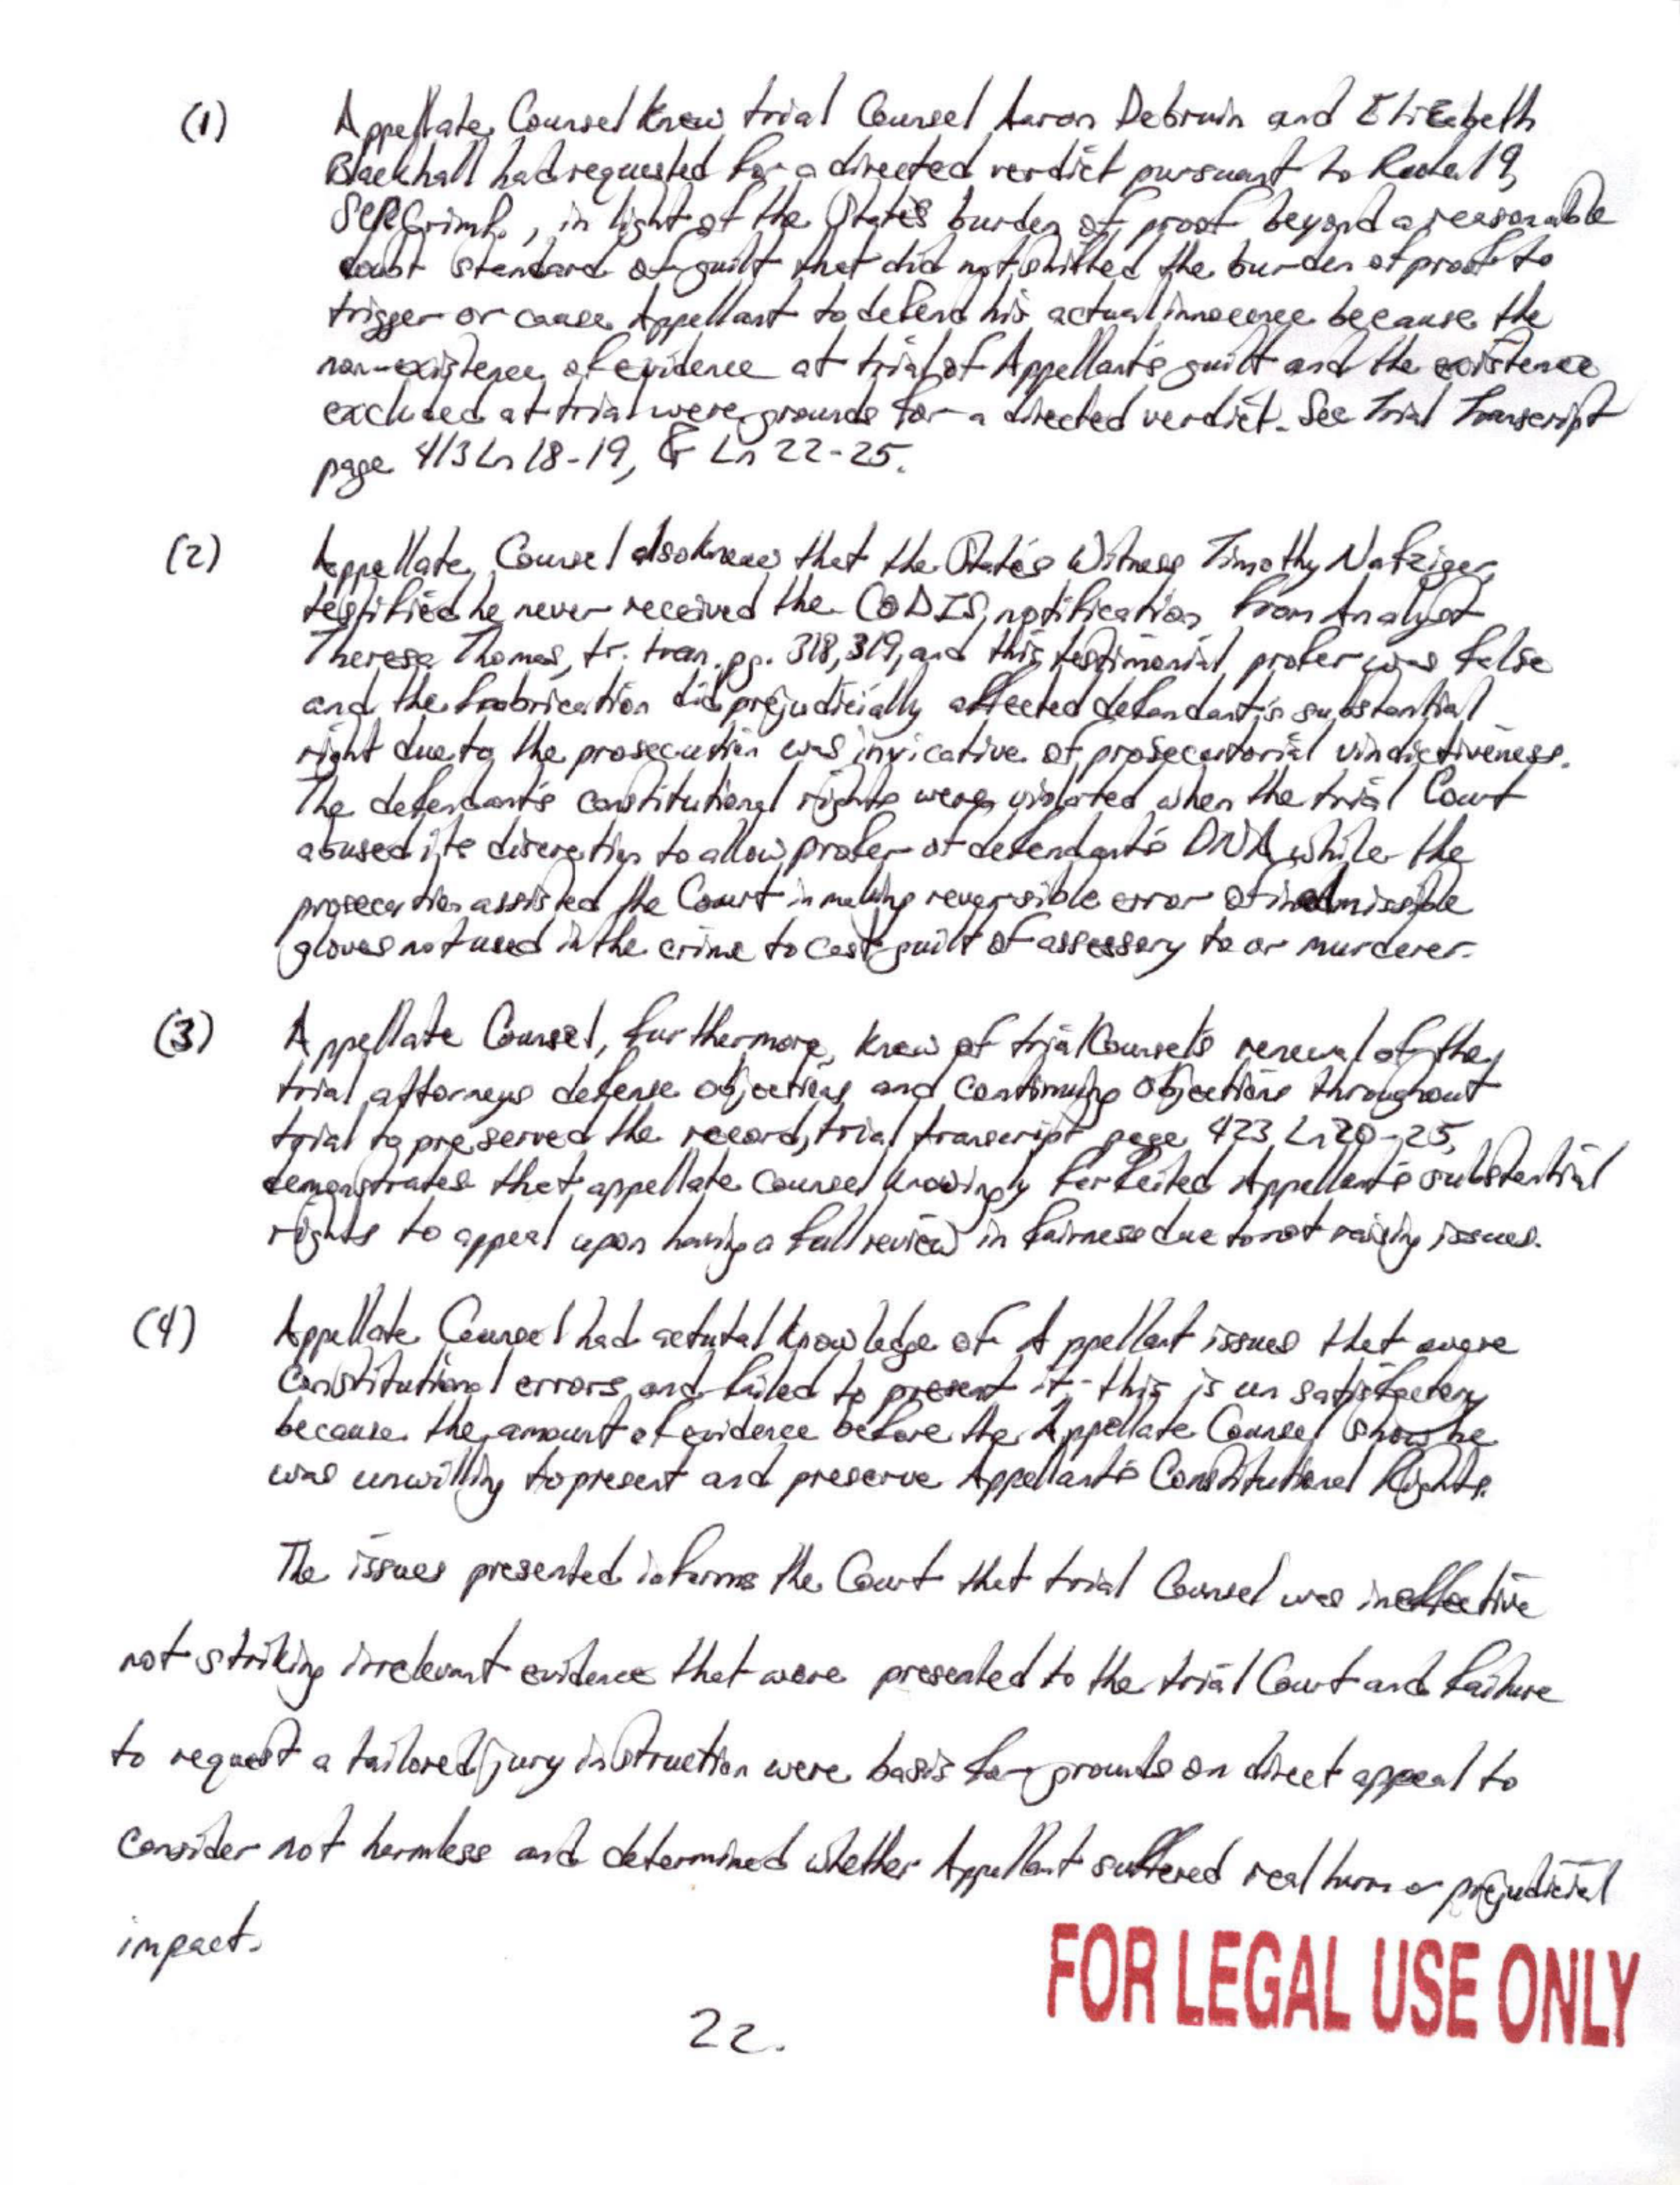 (1) Appellate Counsel knew trial Counsel Aaron Debruin and Elizabeth
Blackhall had requested for a directed verdict pursuant to Rule 19,
SCRCrimP., in light of the State's burden of proof beyond a reasonable
doubt standard of guilt that did not shifted the burden of proof to
trigger or cause Appellant to defend his actual innocence because the
non-existence of evidence at trial of Appellant's guilt and the existence
excluded at trial were grounds for a directed verdict. See Trial Transcript
page 413 Ln 18-19, & Ln 22-25.
(2) Appellate Counsel also knew that the State's Witness Timothy Nafziger,
testified he never received the CODIS notification from Analyst
Theresa Thomas, tr. tran. pg. 318, 319, and this testimonial profer was false
and the fabrication did prejudicially affected defendant's substantial
right due to the prosecution was invicative of prosecutorial vindictiveness.
The defendant's constitutional rights were violated when the trial Court
abused its discretion to allow profer of defendant's DNA while the
prosecution assisted the Court in making reversible error of inadmissible
gloves not used in the crime to cast guilt of assessory to or murderer.
(3) Appellate Counsel, furthermore, knew of trial Counsel's renewal of the
trial attorneys defense objections and continuing objections throughout
trial to preserved the record, trial transcript page 423, Ln 20-25,
demonstrates that appellate counsel knowingly forfeited Appellant's substantial
rights to appeal upon having a full review in fairness due to not raising issues.
(4) Appellate Counsel had actutal knowledge of Appellant issues that were
Constitutional errors, and failed to present it; this is unsatisfactory
because the amount of evidence before the Appellate Counsel shows he
was unwilling to present and preserve Appellant's Constitutional Rights.
The issues presented informs the Court that trial Counsel was ineffective
not striking irrelevant evidence that were presented to the trial Court and failure
to request a tailored jury instruction were basis for grounds on direct appeal to
consider not harmless and determined whether Appellant suffered real harm or prejudicial
impact.
22.
FOR LEGAL USE ONLY